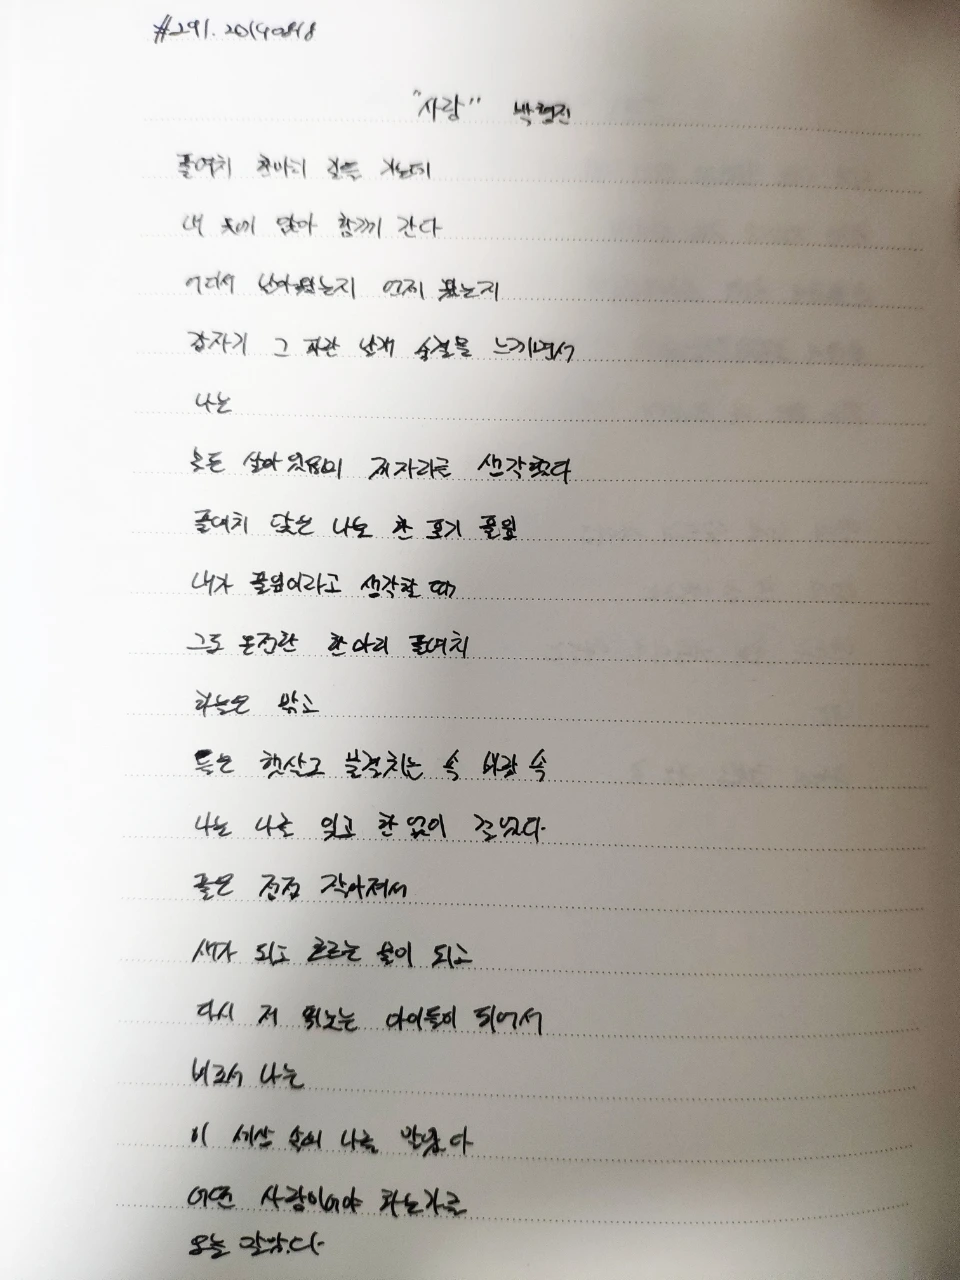 #291. 20190818
"사랑" 박형진
풀여치 한마리 길을 가는데
내 옷에 앉아 함께 간다
어디서 날아왔는지 언제 왔는지
갑자기 그 파란 날개 숨결을 느끼면서
나는
모든 살아있음의 제자리를 생각했다
풀여치 앉은 나는 한 포기 풀잎
내가 풀잎이라고 생각할 때
그도 온전한 한마리 풀여치
하늘은 맑고
들은 햇살로 물결치는 속 바람 속
나는 나를 잊고 한없이 걸었다.
풀은 점점 작아져서
새가 되고 흐르는 물이 되고
다시 저 뛰노는 아이들이 되어서
비로서 나는
이 세상 속의 나를 알았다
어떤 사랑이어야 하는가를
오늘 알았다.